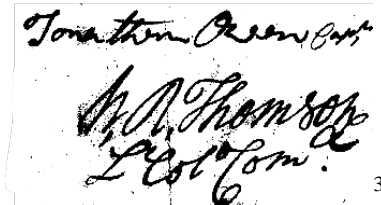 Jonathan Owen, Capt.
W. R. Thomson
Lt Col Com.
3